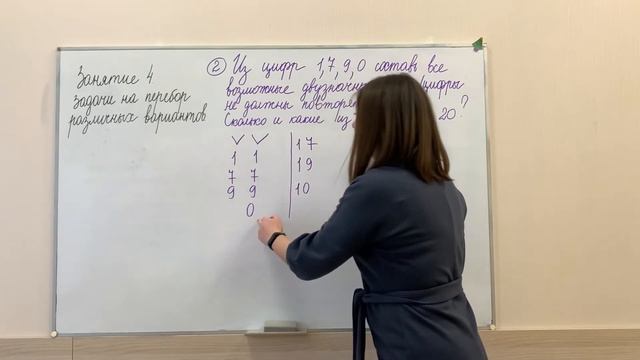 Занятие 4
Задачи на перебор
различных вариантов
② Из цифр 1,7,9,0 составь все
возможные двузначн цифры
не должны повторя ?
Сколько и какие из 20
1 1
7 7
9 9
0
17
19
10